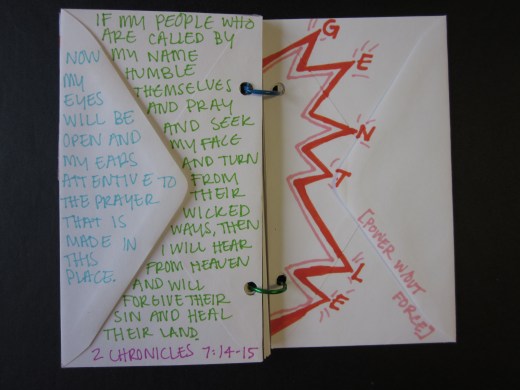 IF MY PEOPLE WHO
ARE CALLED BY
MY NAME
HUMBLE
THEMSELVES
AND PRAY
AND SEEK
MY FACE
AND TURN
FROM
THEIR
WICKED
WAYS, THEN
I WILL HEAR
FROM HEAVEN
AND WILL
FORGIVE THEIR
SIN AND HEAL
THEIR LAND.
NOW
MY
EYES
WILL BE
OPEN AND
MY EARS
ATTENTIVE TO
THE PRAYER
THAT IS
MADE IN
THIS
PLACE.
2 CHRONICLES 7:14-15
G
E
N
T
L
E
[POWER W/OUT
FORCE]